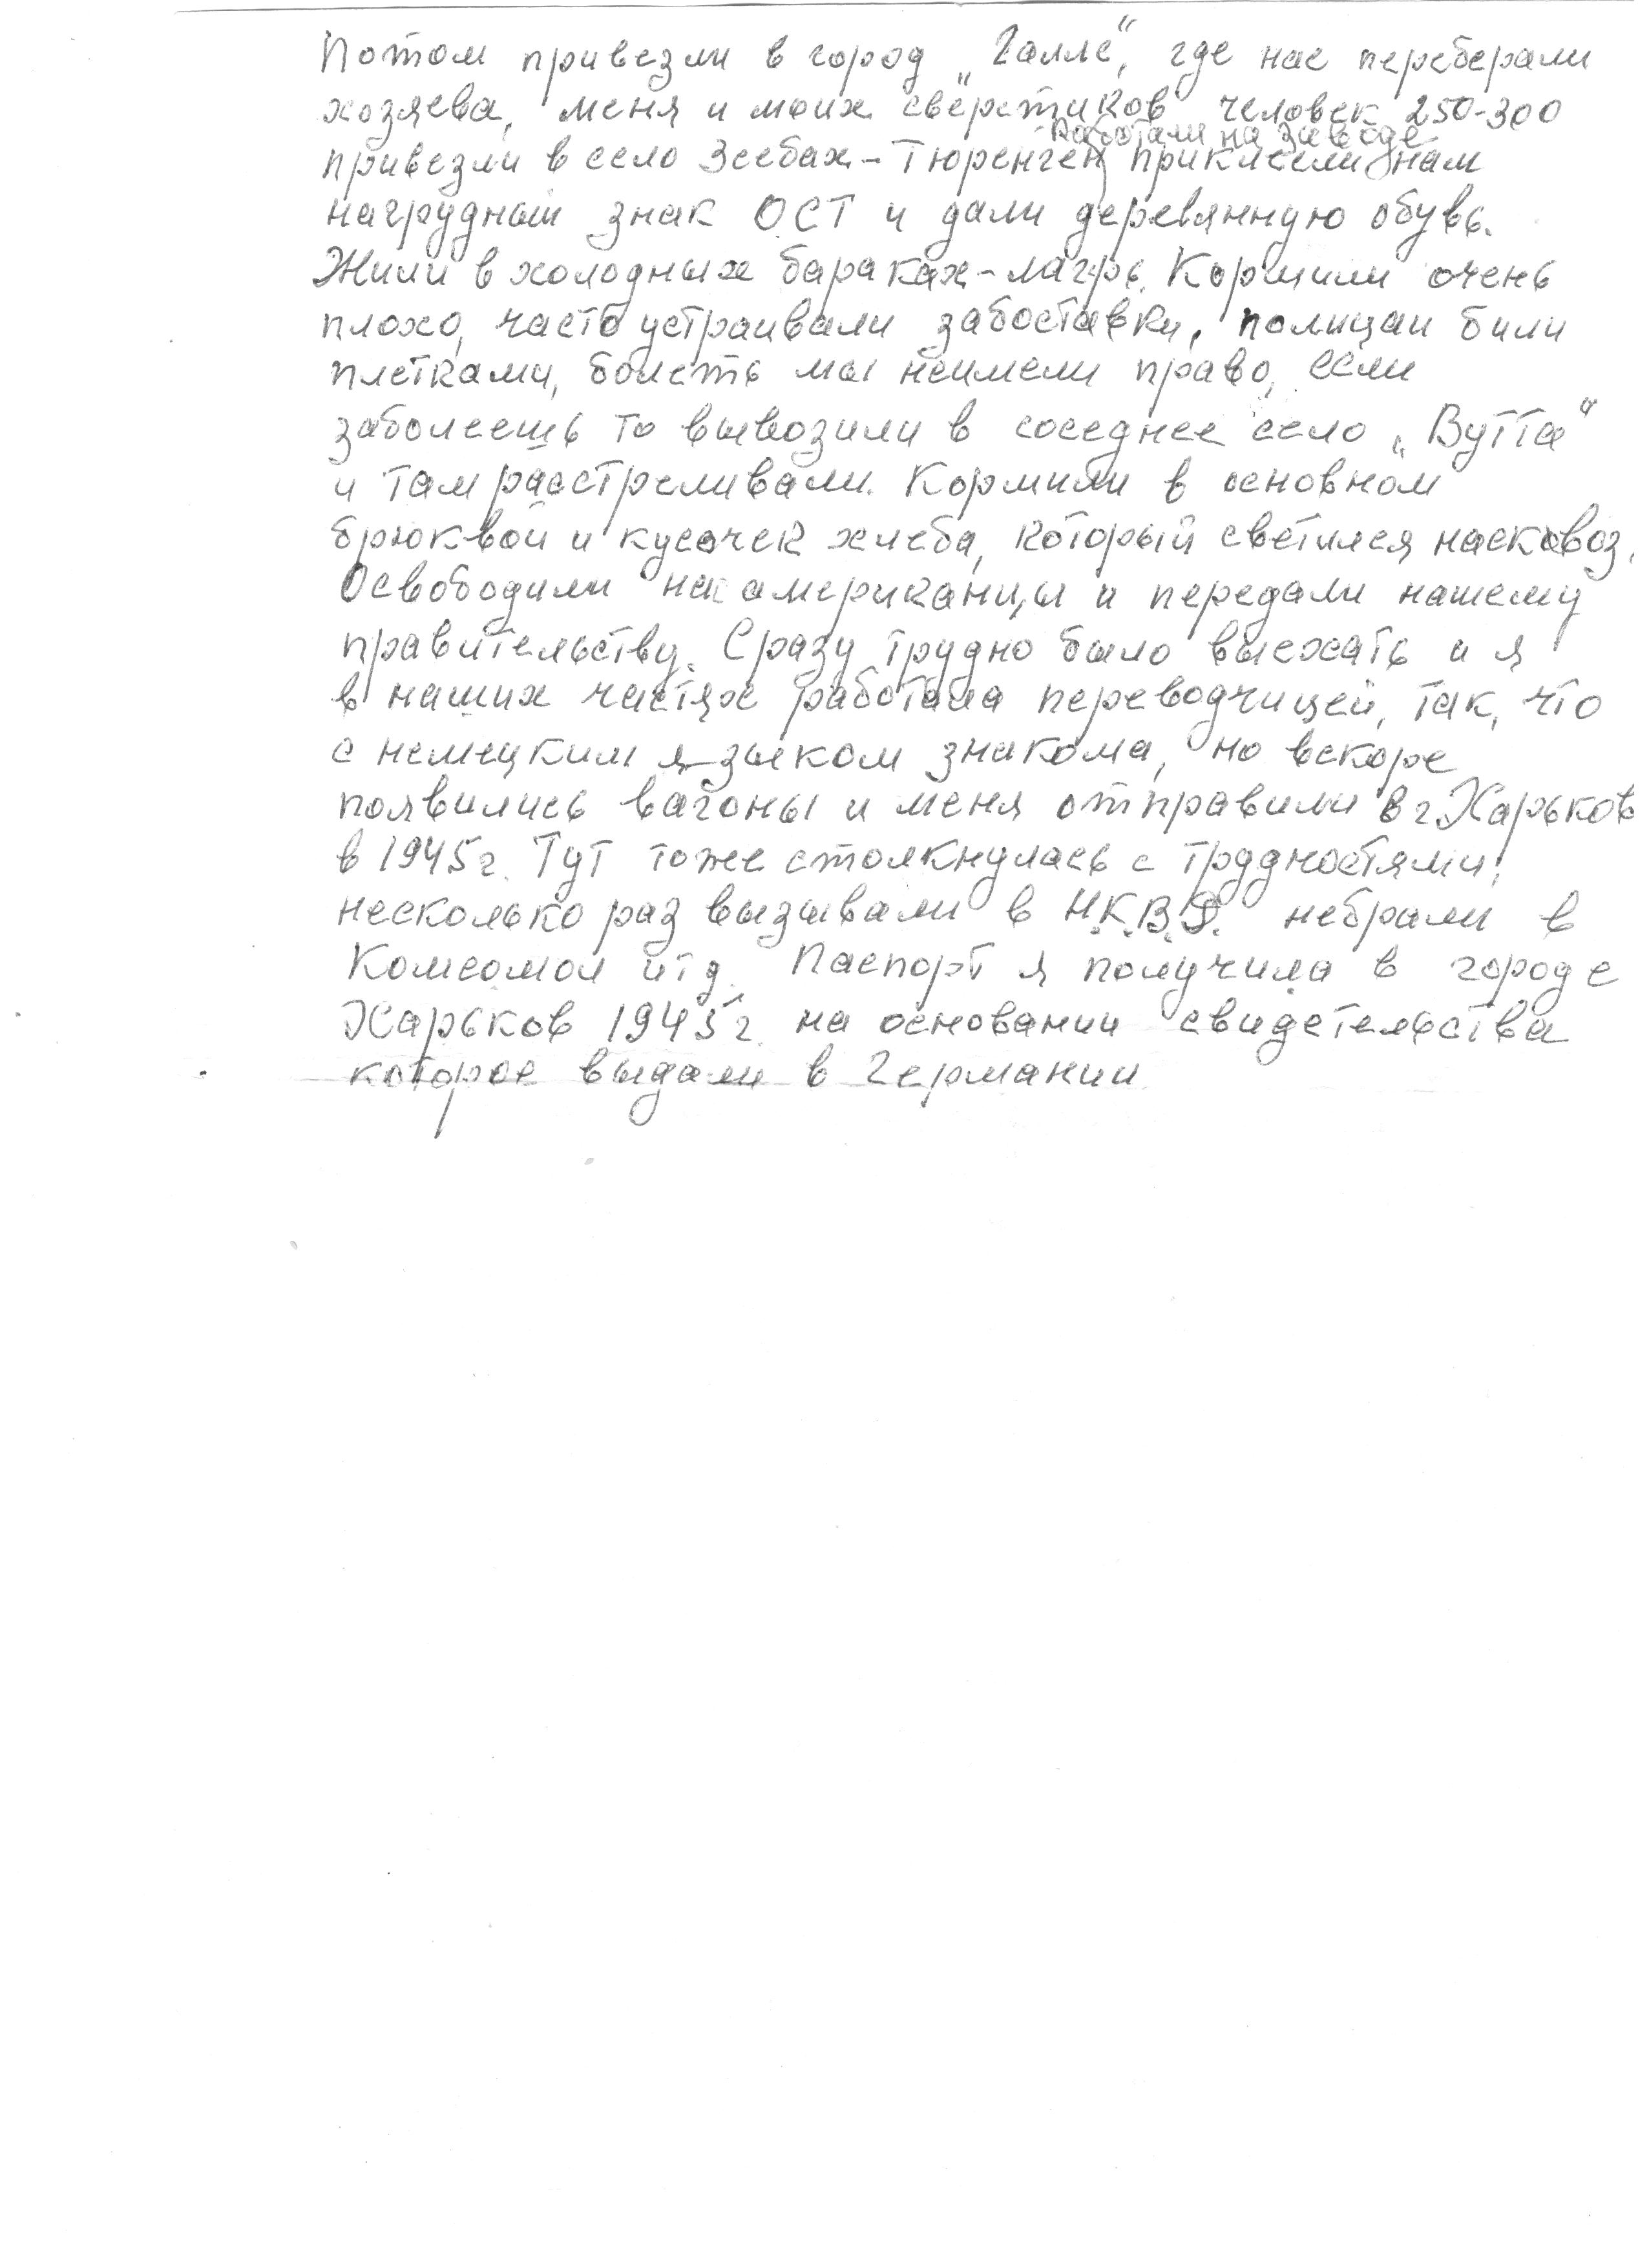 Потом привезли в город „Галле“, где нас переберали
хозяева, меня и моих сверстиков человек 250-300
Работали на заводе
привезли в село Зеебах-Тюренген приклеели нам
нагрудный знак ОСТ и дали деревянную обувь.
Жили в холодных бараках-лагрь. Кормили очень
плохо, часто устраивали забоставки, полицаи били
плетками, болеть мы неимели право, если
заболеешь то вывозили в соседнее село „Вутта“
и там расстреливали. Кормили в основном
брюквой и кусочек хлеба, который светился насквоз.
Освободили нас американцы и передали нашему
правительству. Сразу трудно было выехать и я
в наших частях работала переводчицей, так, что
с немецким языком знакома, но вскоре
появились вагоны и меня отправили в г. Харьков
в 1945г. Тут тоже столкнулась с трудностями,
несколько раз вызывали в Н.К.В.Д. небрали в
Комсомол итд. Паспорт я получила в городе
Харьков 1945г. на основании свидетельства
которое выдали в Германии.